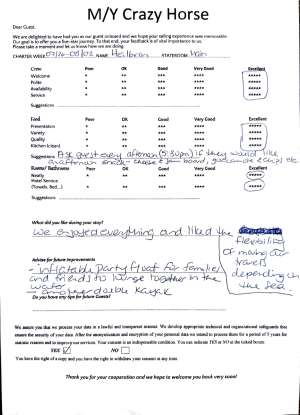 M/Y Crazy Horse
Dear Guest,
We are delighted to have had you as our guest onboard and we hope your sailing experience was memorable.
Our goal is to offer you a five-star journey. To that end, your feedback is of vital importance to us.
Please take a moment and let us know how we are doing.
CHARTER WEEK NAME Heilbron STATEROOM Main
Crew Poor OK Good Very Good Excellent
Welcome * ** *** **** *****
Polite * ** *** **** *****
Availability * ** *** **** *****
Service * ** *** **** *****
Suggestions
Food Poor OK Good Very Good Excellent
Presentation * ** *** **** *****
Variety * ** *** **** *****
Quality * ** *** **** *****
Kitchen (clean) * ** *** **** *****
Suggestions Ask guest every afternoon (5:30pm) if they would like
afternoon snack - cheese & board, guacamole & chips etc
Rooms/ Bathrooms Poor OK Good Very Good Excellent
Neatly * ** *** **** *****
Hotel Service
(Towels, Bed...) * ** *** **** *****
Suggestions
What did you like during your stay?
We enjoyed everything and liked the
flexibility
of moving our
travels
depending on
the sea.
Advise for future improvements
- inflatable Party float for families
and friends to lounge together in the
water
- another double Kayak
Do you have any tips for future Guests?
We assure you that we process your data in a lawful and transparent manner. We develop appropriate technical and organizational safeguards that
ensure the security of your data. After the anonymization and encryption of your personal data we intend to process them for a period of 5 years for
statistic reasons and to improve our services. Your consent is an indispensable condition. You can indicate YES or NO at the ticked boxes.
YES NO
You have the right of a copy and you have the right to withdraw your consent at any time.
Thank you for your cooperation and we hope to welcome you back very soon!